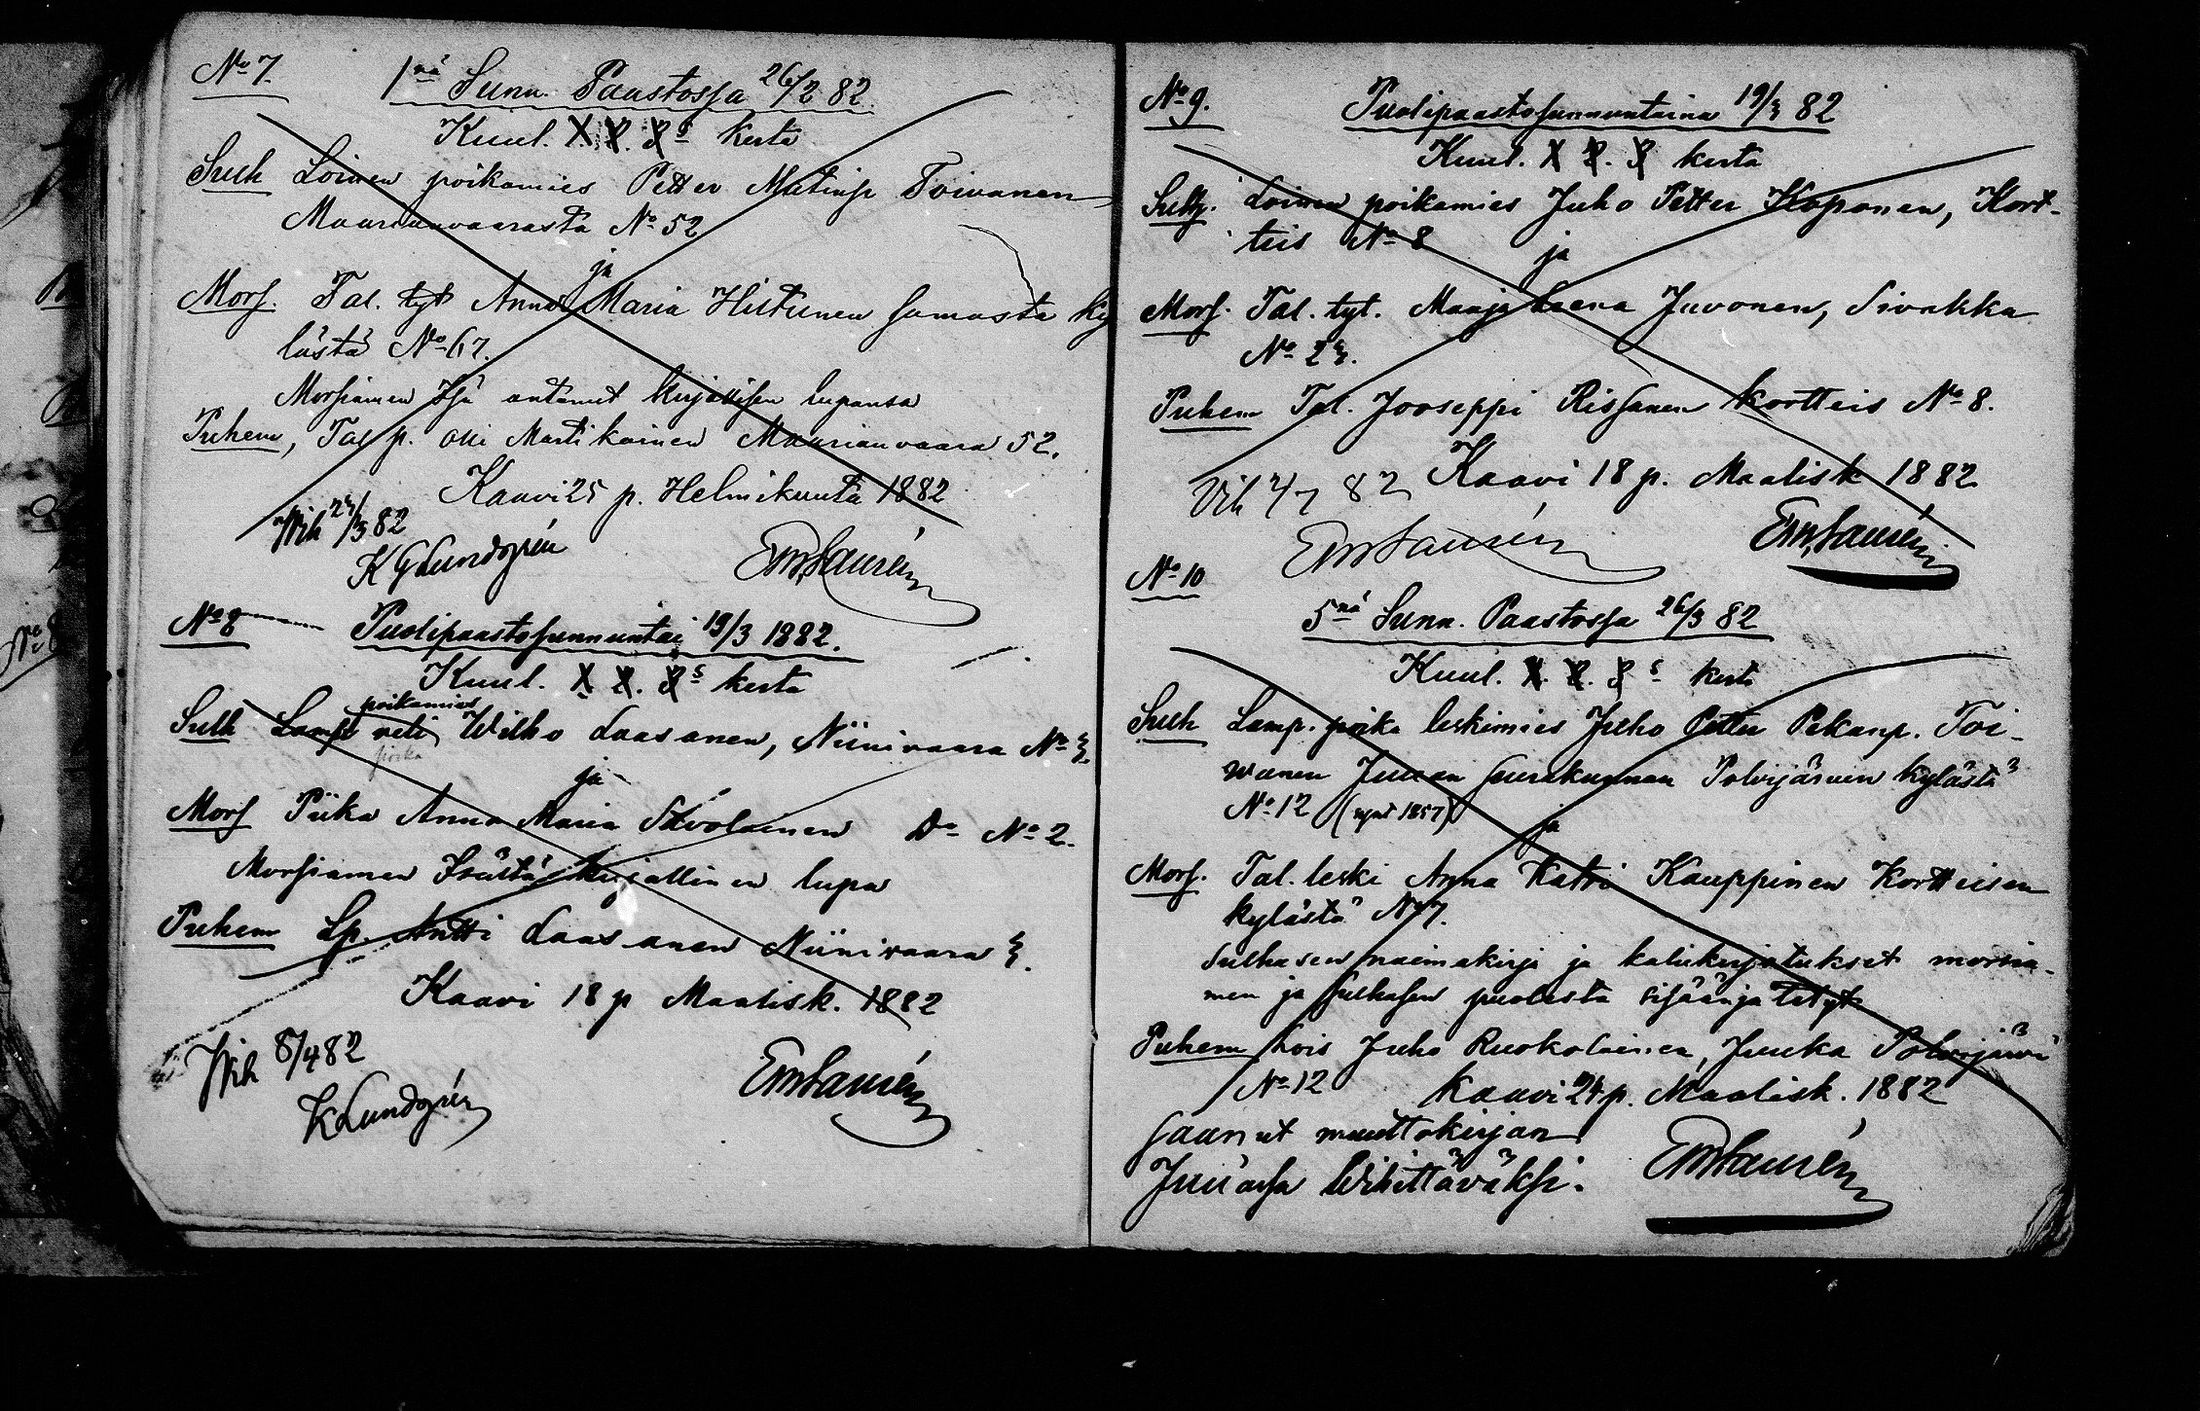 No 7.
1nä Sunn. Paastossa 26/2 82.
Kuul. X. 2. 3s kerta
Sulh Loinen poikamies Petter Matinp Toivanen
Maarianvaarasta No 52
ja
Mors. Tal. tyt Anna Maria Hiltunen samasta ky
lästä No 67.
Morsiamen Isä antanut kirjallisen lupansa
Puhem, Tal p. Olli Martikainen Maarianvaara 52.
Kaavi 25 p. Helmikuuta 1882
Wih 24/3 82
K G Lundgrén
EmSaurén
No 8
Puolipaastosunnuntai 19/3 1882.
Kuul. X. 2. 3s kerta
poikamies
Sulh Lamp veli Wilho Laasanen, Niinivaara No 3.
poika
ja
Mors Piika Anna Maria Savolainen Do No 2.
Morsiamen Isältä kirjallinen lupa
Puhem Lp. Antti Laasanen Niinivaara 3.
Kaavi 18 p Maalisk. 1882
Wih 8/4 82
K Lundgrén
EmSaurén
No 9.
Puolipaastosunnuntaina 19/3 82
Kuul. X 2. 3 kerta
Sulh. Loinen poikamies Juho Petter Koponen, Kort-
teis No 8
ja
Mors. Tal. tyt. Maaja Leena Juvonen, Sivakka
No 23.
Puhem Tal. Jooseppi Rissanen Kortteis No 8.
Kaavi 18 p. Maalisk 1882
Vih 2/7 82
EmSaurén
EmSaurén
No 10
5nä Sunn. Paastossa 26/3 82
Kuul. X. 2. 3s kerta
Sulh Lamp. poika leskimies Juho Petter Pekanp. Toi-
wanen Juuan seurakunnan Polvijärven kylästä
No 12 (synt 1857)
ja
Mors. Tal. leski Anna Katri Kauppinen Kortteisen
kylästä No 7.
Sulhasen naimakirja ja kalukirjoitukset morsia-
men ja sulhasen puolesta sisäänjätetyt
Puhem Lois Juho Ruokolainen, Juuka Polvijärvi
No 12
Kaavi 24 p. Maalisk. 1882
Saanut muuttokirjan
Juuassa Wihittäväksi.
EmSaurén